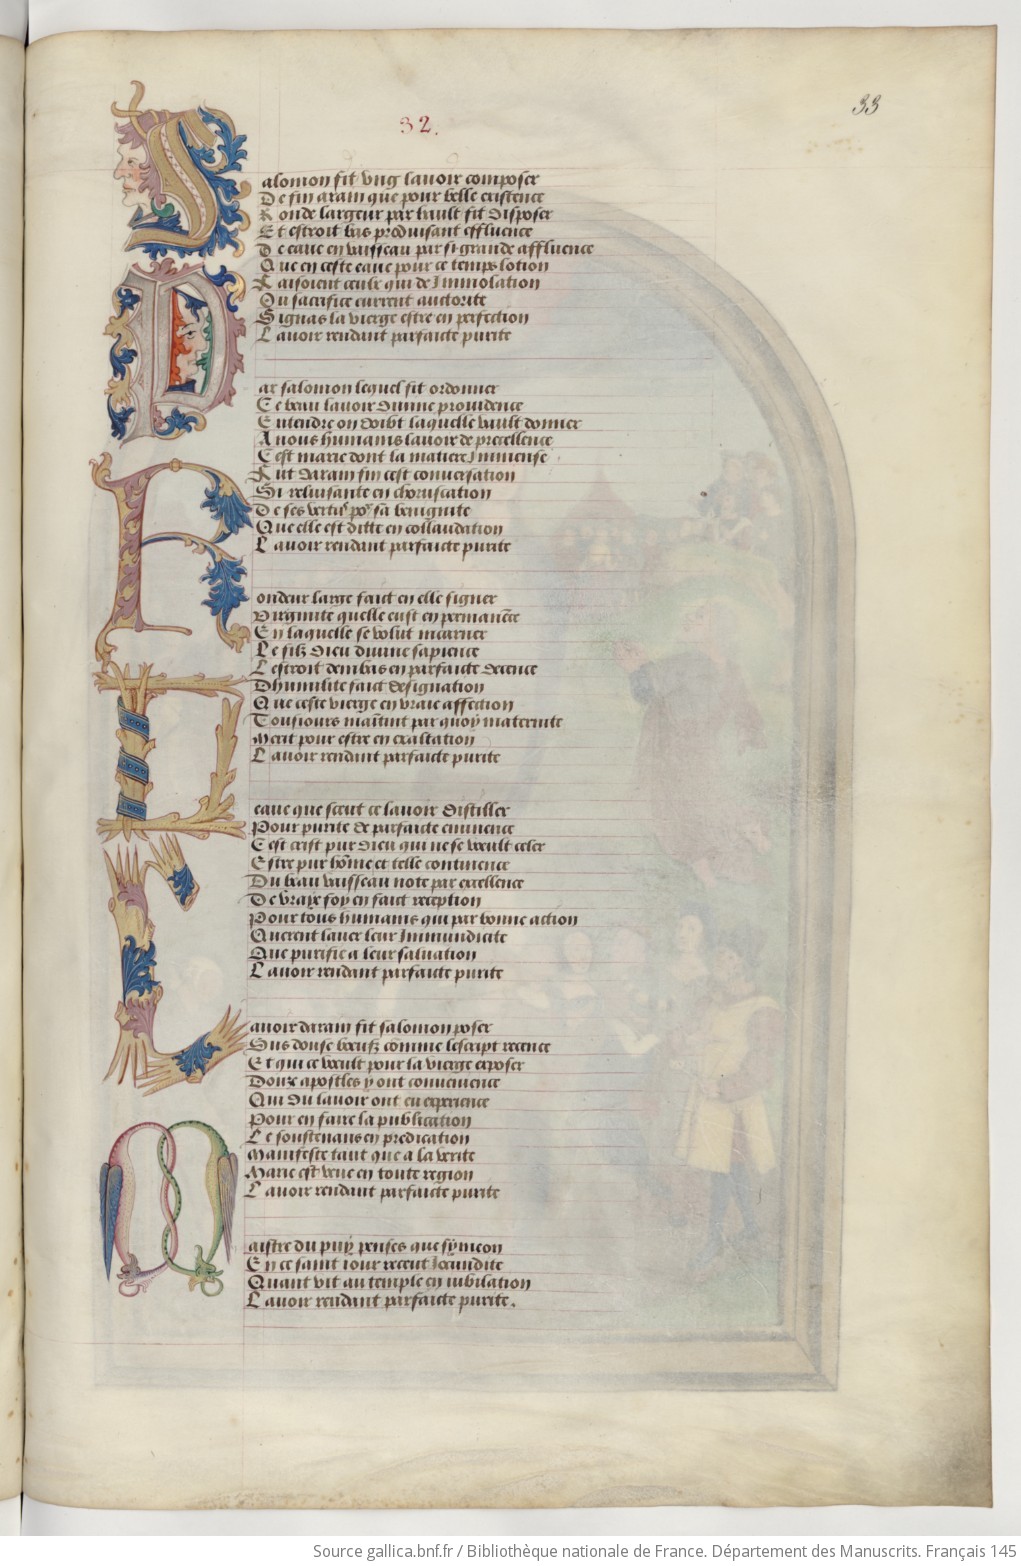 33
32.
Salomon fit vng lauoir composer
De fin arain que pour belle existence
Ronde largeur par hault fit disposer
Et estroit bas produisant effluence
De eaue en vaisseau par si grande affluence
Que en ceste eaue pour ce temps lotion
Faisoient ceulx qui de Immolation
Ou sacrifice eurent auctorite
Signas la vierge estre en perfection
Lauoir rendant parfaicte purite
Par salomon lequel fit ordonner
Ce beau lauoir diuine prouidence
Entendre on doibt laquelle vault donner
A nous humains lauoir de precellence
Cest marie dont la matiere Immense
Fut darain fin cest conuersation
Si reluisante en choruscation
De ses vertus por sa benignite
Que elle est ditte en collaudation
Lauoir rendant parfaicte purite
Rondeur large faict en elle signer
Virginite quelle eust en permanēce
En laquelle se volut incarner
Le filz dieu diuine sapience
Lestroit dembas en parfaicte decence
Dhumilite faict designation
Que ceste vierge en vraie affection
Tousiours maītint par quoy maternite
Merit pour estre en exaltation
Lauoir rendant parfaicte purite
Leaue que sceut ce lauoir distiller
Pour purite de parfaicte eminence
Cest crist pur dieu qui ne se veult celer
Estre pur hōme et telle continence
Du beau vaisseau note par excellence
De vraye foy en faict reception
Pour tous humains qui par bonne action
Querent lauer leur Immundicite
Que purifie a leur saluation
Lauoir rendant parfaicte purite
Lauoir darain fit salomon poser
Sus douse beufz cōmme lescript recence
Et qui ce veult pour la vierge exposer
Douze apostles y ont conuenience
Qui du lauoir ont eu experience
Pour en faire la publication
Le soustenans en predication
Manifeste tant que a la verite
Marie est venue en toute region
Lauoir rendant parfaicte purite
Maistre du puy penses que symeon
En ce saint iour receut Iocundite
Quant vit au temple en iubilation
Lauoir rendant parfaicte purite.
Source gallica.bnf.fr / Bibliothèque nationale de France. Département des Manuscrits. Français 145